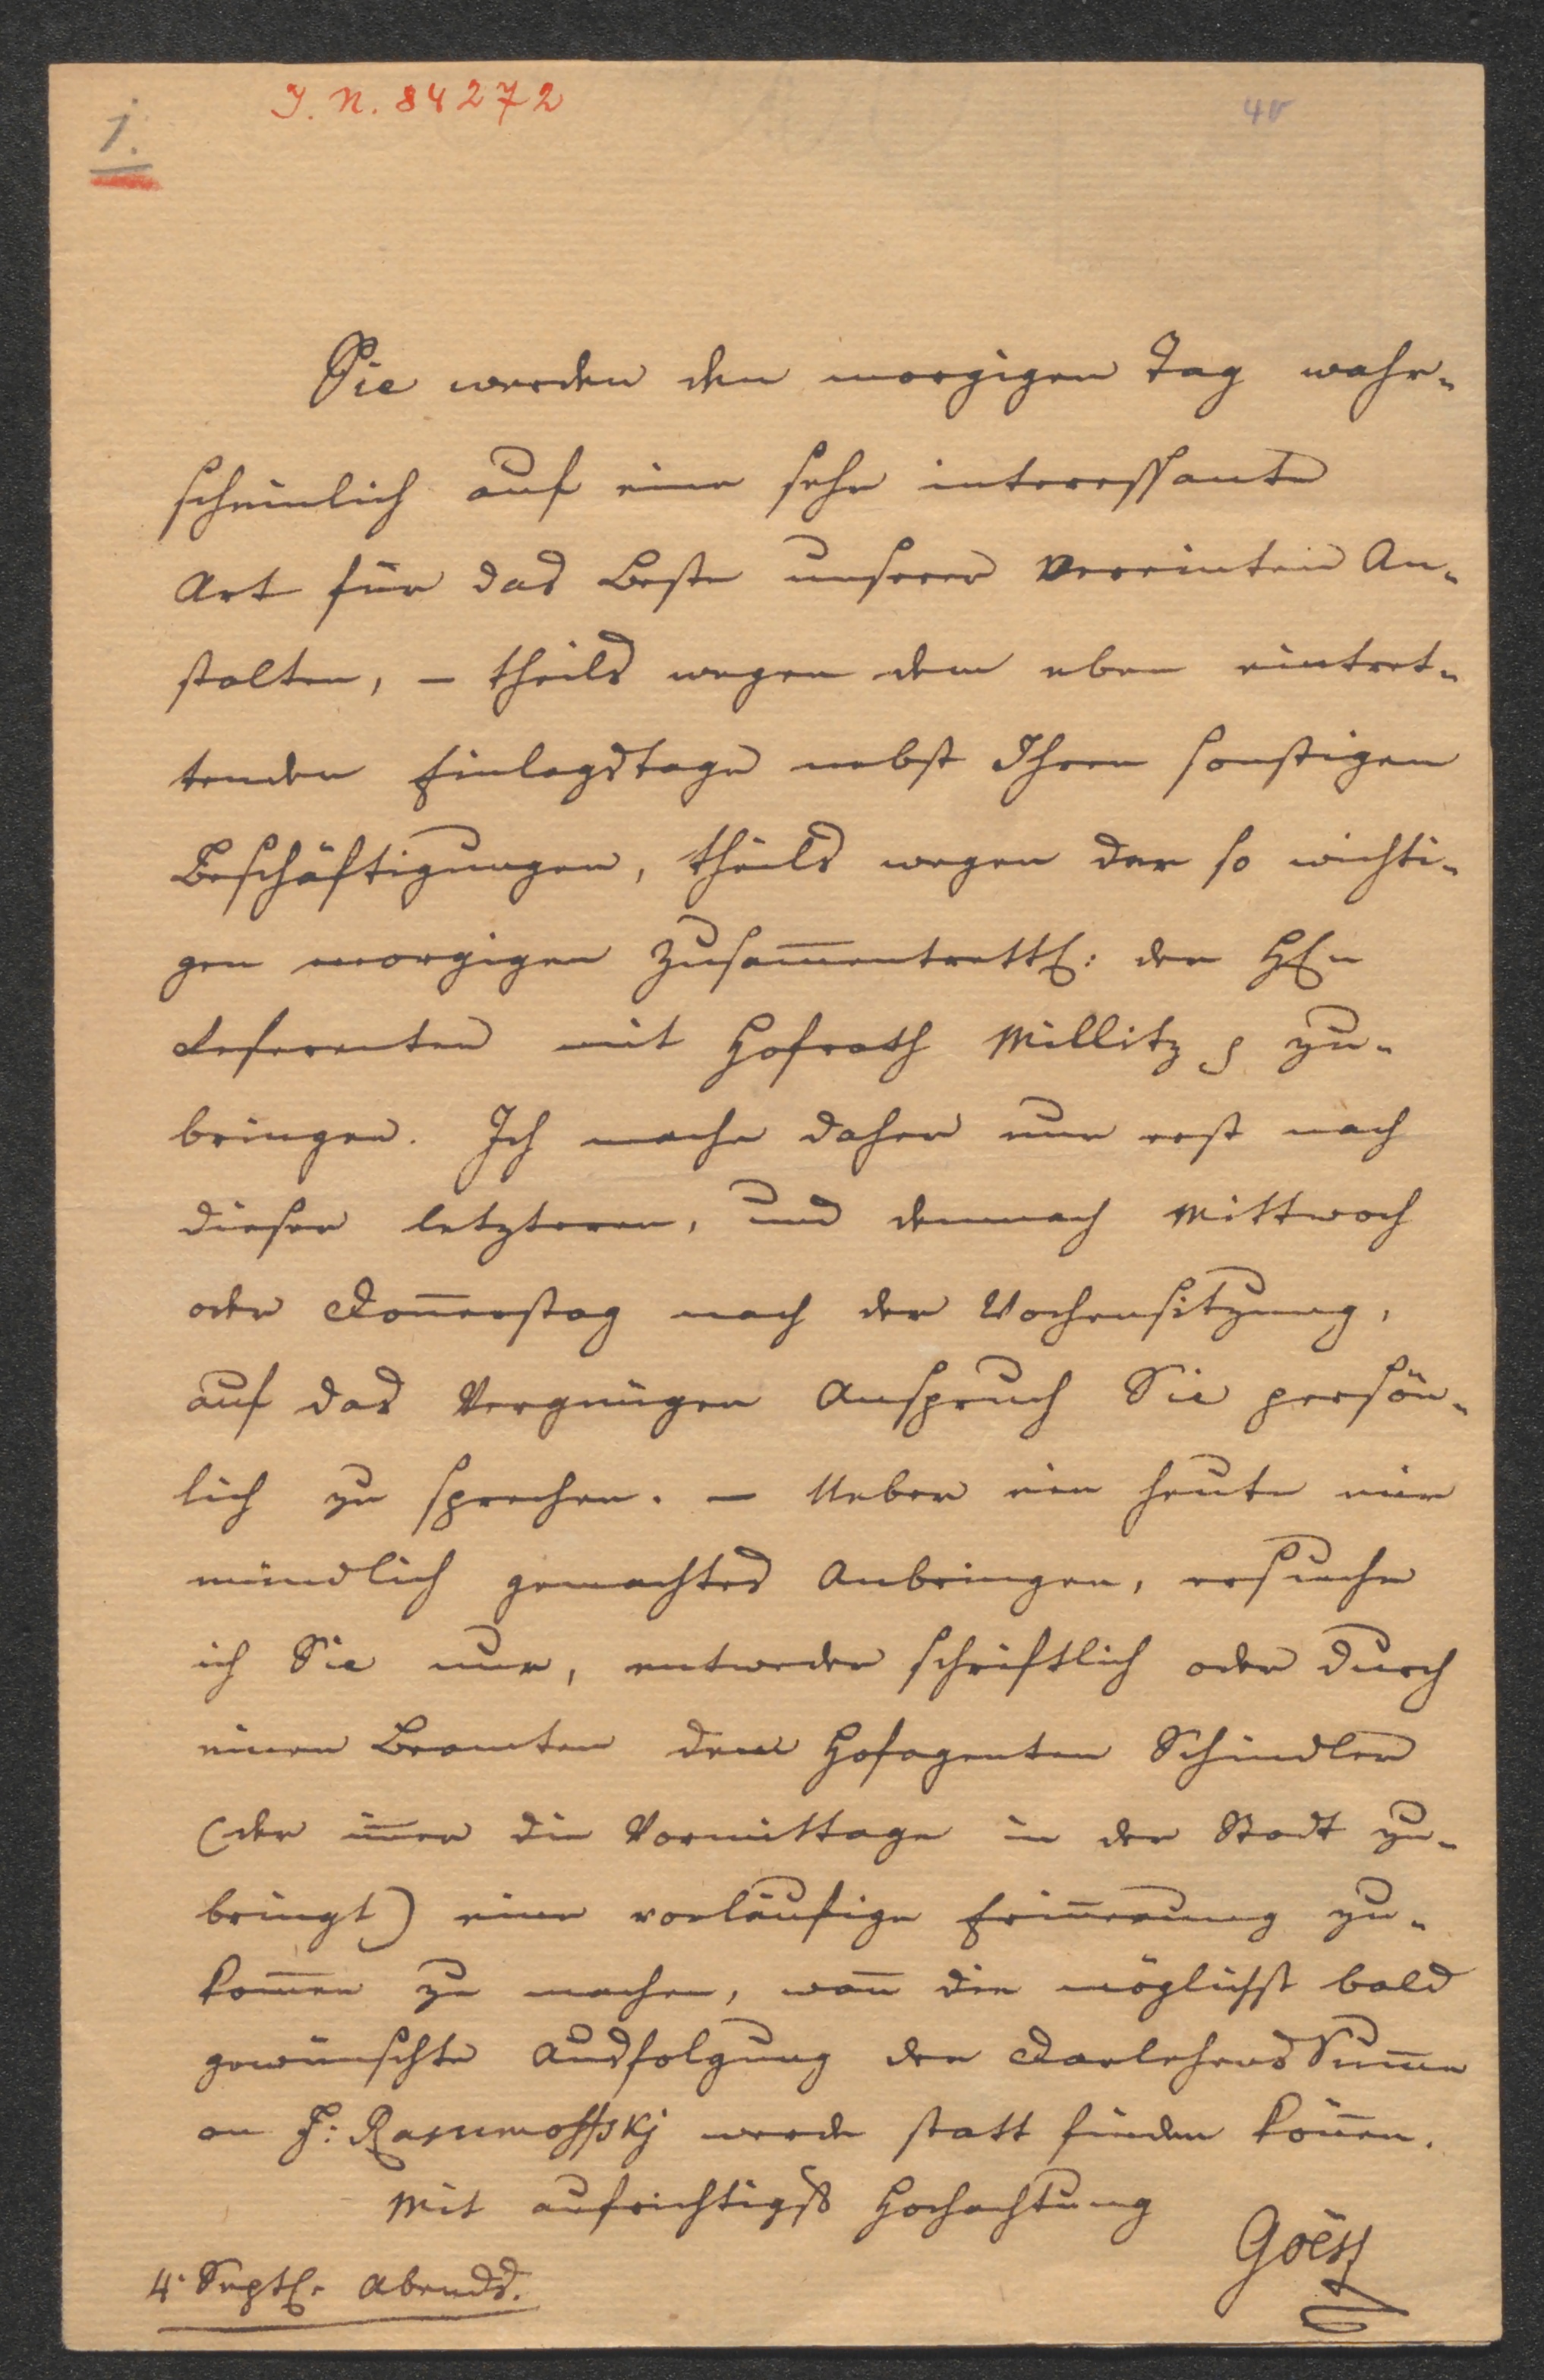 J. N. 84272
1.
40
Sie werden den morgigen Tag wahr-
scheinlich auf eine sehr interessante
Art für das Beste unserer vereinten An-
stalten, – theils wegen dem eben eintret-
tenden Einlagstage nebst Ihren sonstigen
Beschäftigungen, theils wegen der so wichti-
gen morgigen Zusam̅entrettg: der HE
Referenten mit Hofrath Millitz zu-
bringen. Ich mache daher nur erst nach
dieser letzteren, und demnach Mittwoch
oder Don̅erstag nach der Wochensitzung,
auf das Vergnügen Anspruch Sie persön-
lich zu sprechen. – Ueber ein heute mir
mündlich gemachtes Anbringen, ersuche
ich Sie nur, entweder schriftlich oder durch
einen Beamten dem Hofagenten Schindler
(der im̅er die Vormittage in der Stadt zu-
bringt) eine vorläufige Erin̅erung zu-
kom̅en zu machen, wan̅ die möglichst bald
gewünschte Ausfolgung der Darlehens Sum̅e
an F: Rasumoffskj werde statt finden kön̅en.
Mit aufrichtigst Hochachtung
Goëss
4. Septb. Abends.